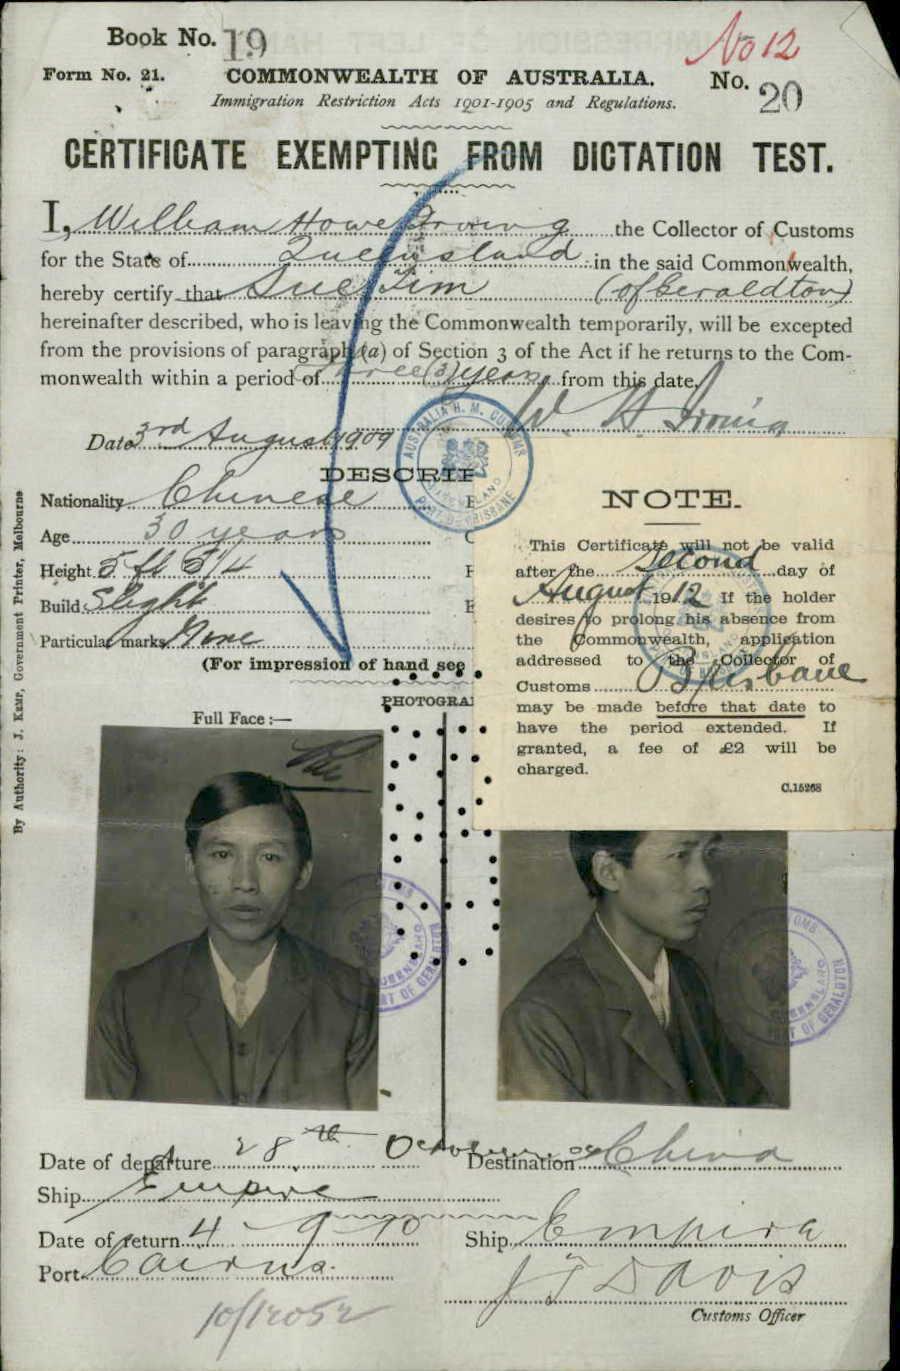 Book No. 19
No 12
Form No. 21.
COMMONWEALTH OF AUSTRALIA.
No. 20
Immigration Restriction Acts 1901-1905 and Regulations.
CERTIFICATE EXEMPTING FROM DICTATION TEST.
I, William Howe Irving the Collector of Customs
for the State of Queensland in the said Commonwealth,
hereby certify that Sue Tim (of Geraldton)
hereinafter described, who is leaving the Commonwealth temporarily, will be excepted
from the provisions of paragraph (a) of Section 3 of the Act if he returns to the Com-
monwealth within a period of Three (3) years from this date.
W. H. Irving
Date 3rd August 1909
AUSTRALIA H. M. CUSTOMS
QUEENSLAND
PORT OF BRISBANE
DESCRIP
Nationality Chinese
Age 30 years
Height 5 ft 5 1/4
Build Slight
Particular marks None
(For impression of hand see
NOTE.
This Certificate will not be valid
after the second day of
August 1912 If the holder
desires to prolong his absence from
the Commonwealth, application
addressed to the Collector of
Customs Brisbane
may be made before that date to
have the period extended. If
granted, a fee of £2 will be
charged.
C.15268
PHOTOGRA
Full Face:—
By Authority: J. Kemp, Government Printer, Melbourne
QUEENSLAND
PORT OF GERALDTON
CUSTOMS
QUEENSLAND
PORT OF GERALDTON
Date of departure 28th October 09 Destination China
Ship Empire
Date of return 4-9-10 Ship Empire
Port Cairns.
J T Davis
Customs Officer
10/12052